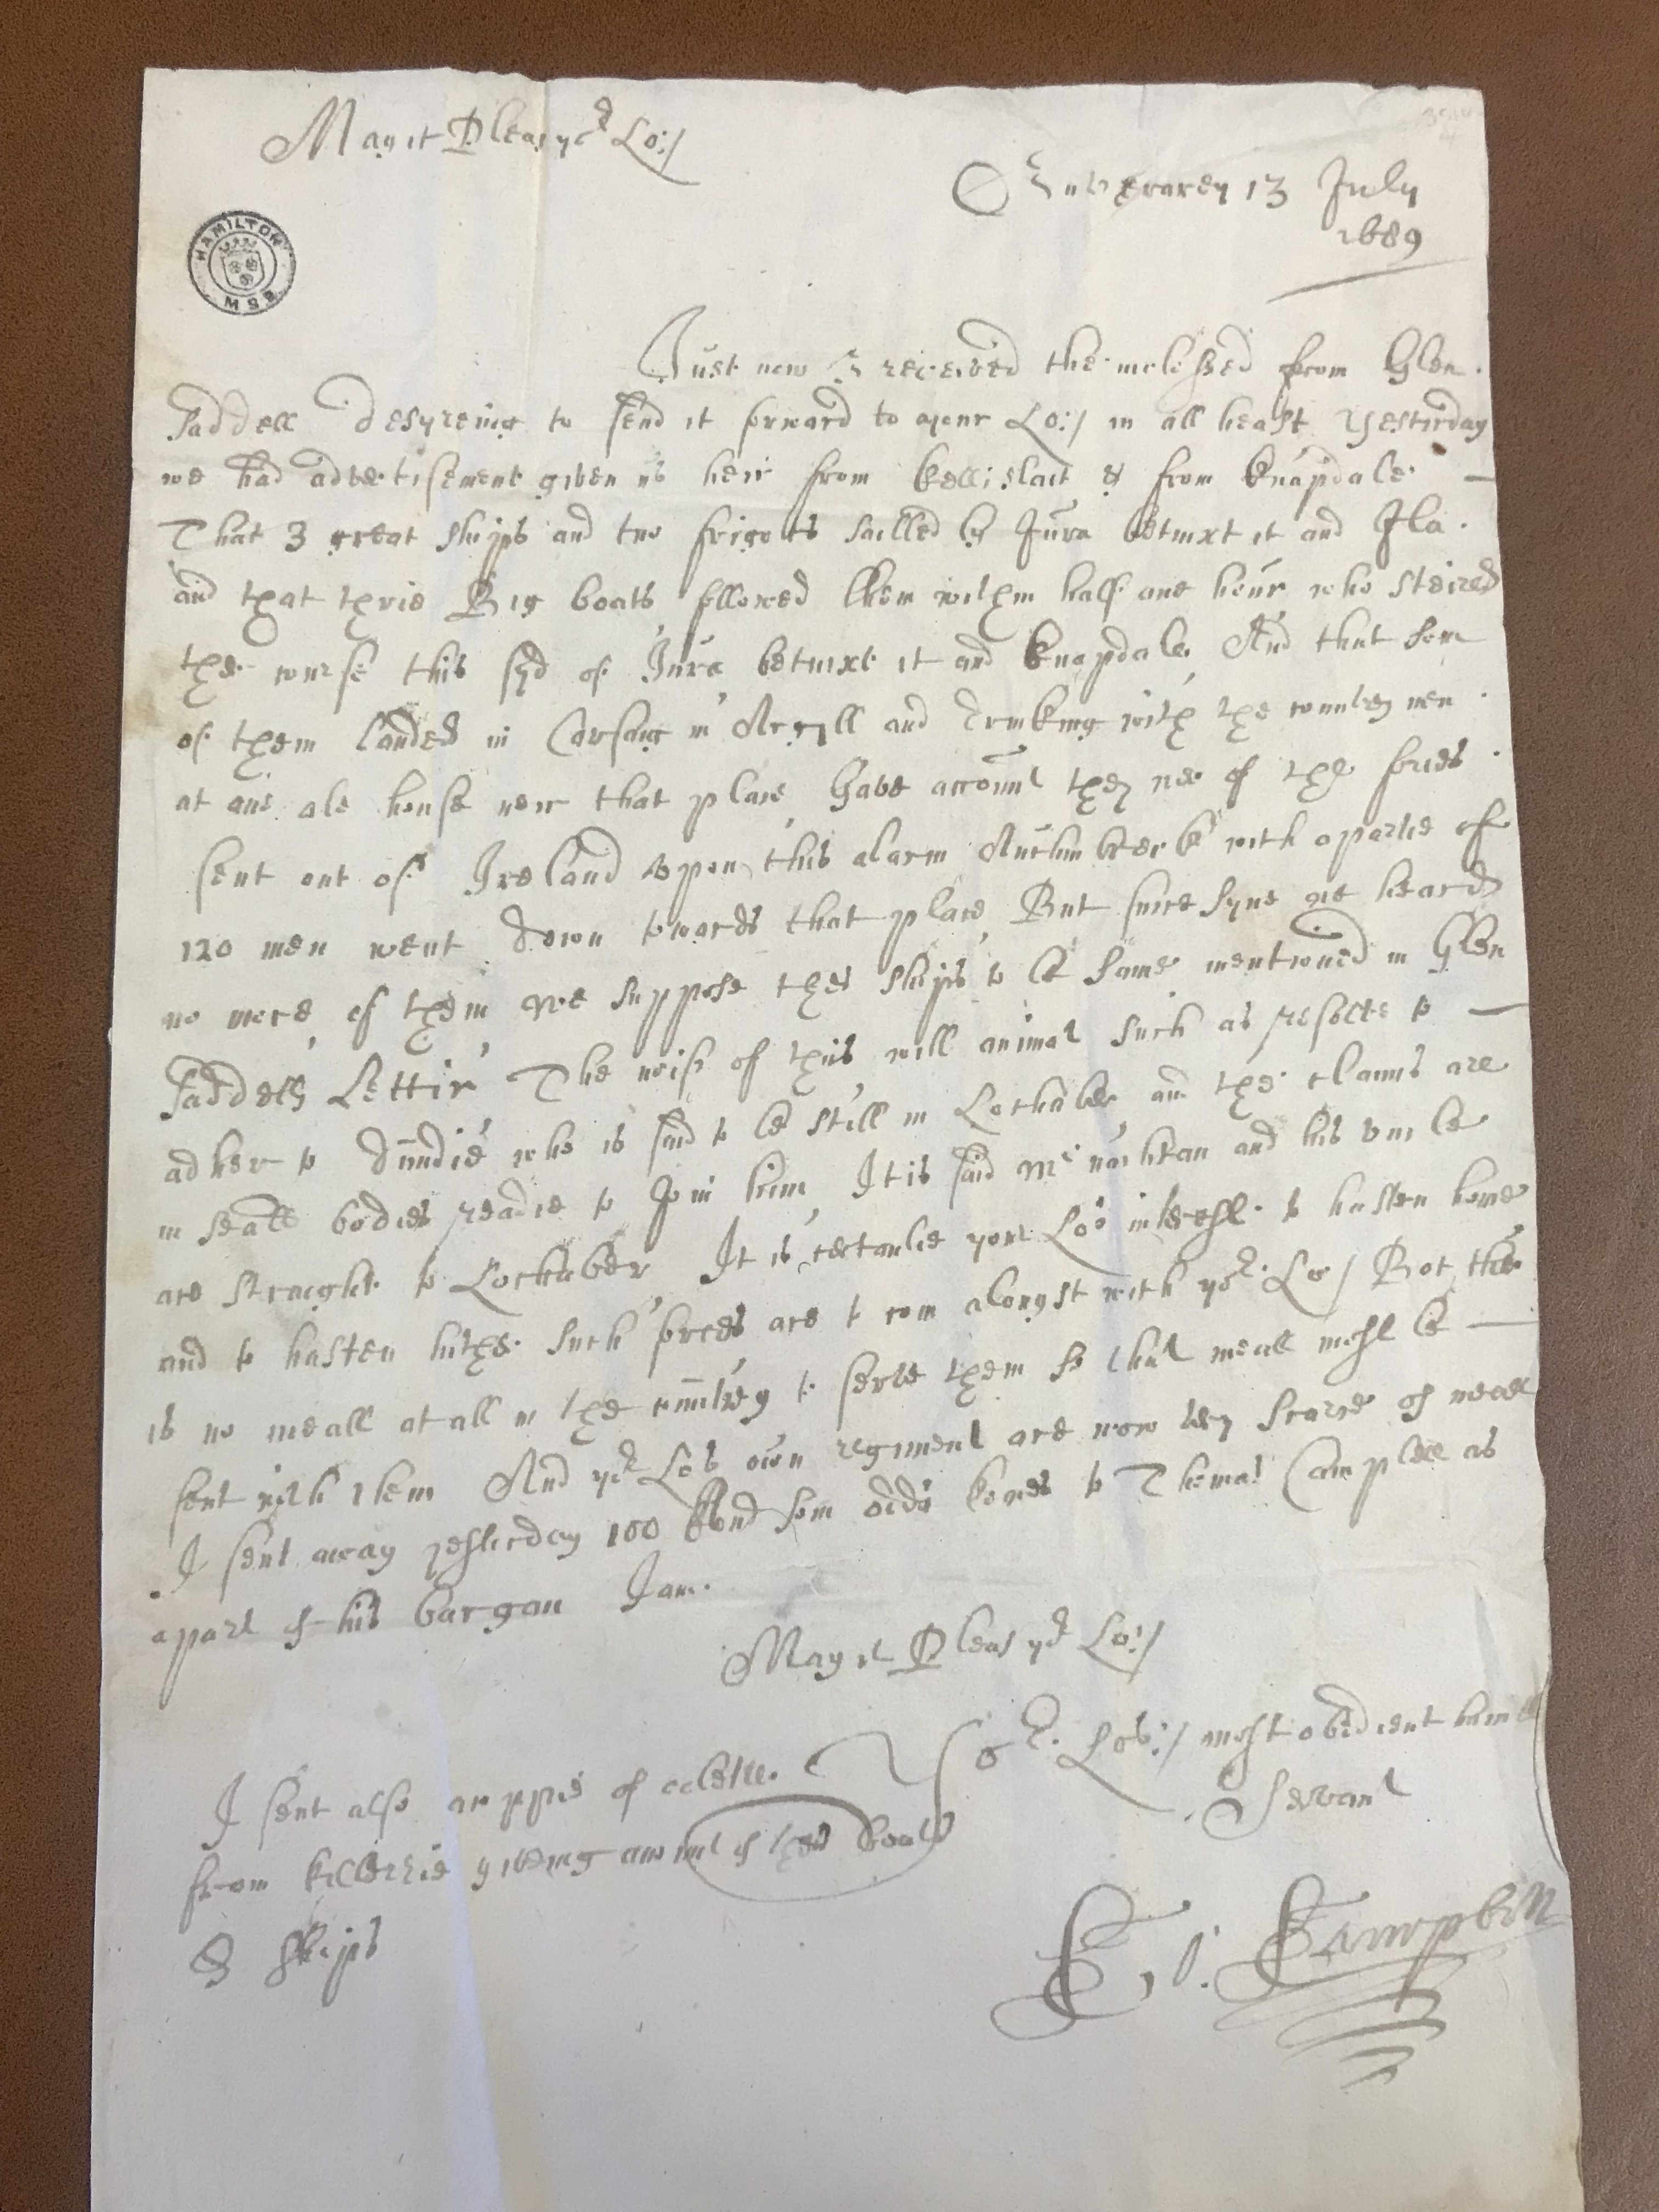 May it Pleas yor Lo:/
Inverarey 13 July
1689
HAMILTON
MSS
Just now I received the inclossed from Glen
Saddell desyreing to send it forward to your Lo:/ in allheast Yesterday
we had advertisement given us heir from kellislait & from knapdale
That 3 great ships and two frigots sailled by Jura betwixt it and Ila
and that thrie Big boats followed them within half ane hour who steired
the course this syd of Jura betwixt it and knapdale And that som
of them landed in Carsaig in Argyll and drinking with the countrey men
at ane ale house neir that place Gave account they wer of the forces
sent out of Ireland upon this alarm Auchinbreck with a partie of
120 men went down towards that place But since syne we heard
no more of them We suppose thes ships to be same mentioned in Glen
Saddells Letter The noise of this will animat such as resolve to
adher to Dundie who is said to be still in Lochaber and the clanns are
in seall bodies readie to Join him It is said McNachtan and his uncle
are straight to Lochaber It is certanlie your Los interest to hasten home
and to hasten hither such forces are to com alongst with yor Lo/ Bot ther
is no meall at all in the countrey to serve them so that meall most be
sent with them And yor Los own regiment are now very scarce of meall
I sent away yesterday 100 and som odds to Thomas Campbell as
a part of his bargan I am
May it Pleas yor Lo:/
Yor Los:/ most obedient humble
Servant
I sent also an coppie of a letter
from kilberrie giveing account of thes boats
& ships
Campbell